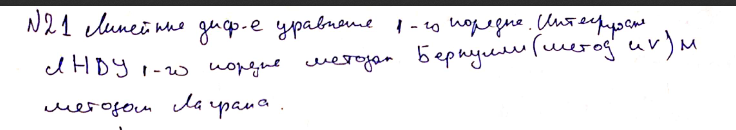 №21 Линейные диф-е уравнение 1-го порядка. Интегрирован
ЛНДУ 1-го порядка методом Бернулли (метод uv) и
методом Лагранжа.